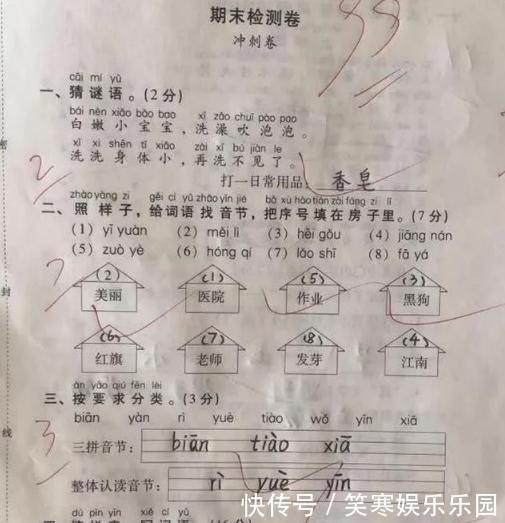 期末检测卷
冲刺卷
99
cāi mí yǔ
一、猜谜语。(2分)
bái nèn xiǎo bǎo bao xǐ zǎo chuī pào pao
白嫩小宝宝,洗澡吹泡泡。
xǐ xi shēn tǐ xiǎo zài xǐ bú jiàn le
洗洗身体小,再洗不见了。
打一日常用品: 香皂
2
zhào yàng zi gěi cí yǔ zhǎo yīn jié bǎ xù hào tián zài fáng zi lǐ
二、照样子,给词语找音节,把序号填在房子里。(7分)
(1) yī yuàn (2) měi lì (3) hēi gǒu (4) jiāng nán
(5) zuò yè (6) hóng qí (7) lǎo shī (8) fā yá
7
(2) (1) (5) (3)
美丽 医院 作业 黑狗
(6) (7) (8) (4)
红旗 老师 发芽 江南
àn yāo qiú fēn lèi
三、按要求分类。(3分)
biān yàn rì yuè tiào wǒ yīn xiā
3
三拼音节: biān tiào xiā
整体认读音节: rì yuè yīn
密
封
线
快传号 / 笑寒娱乐乐园
dú pīn yīn xiě cí yǔ